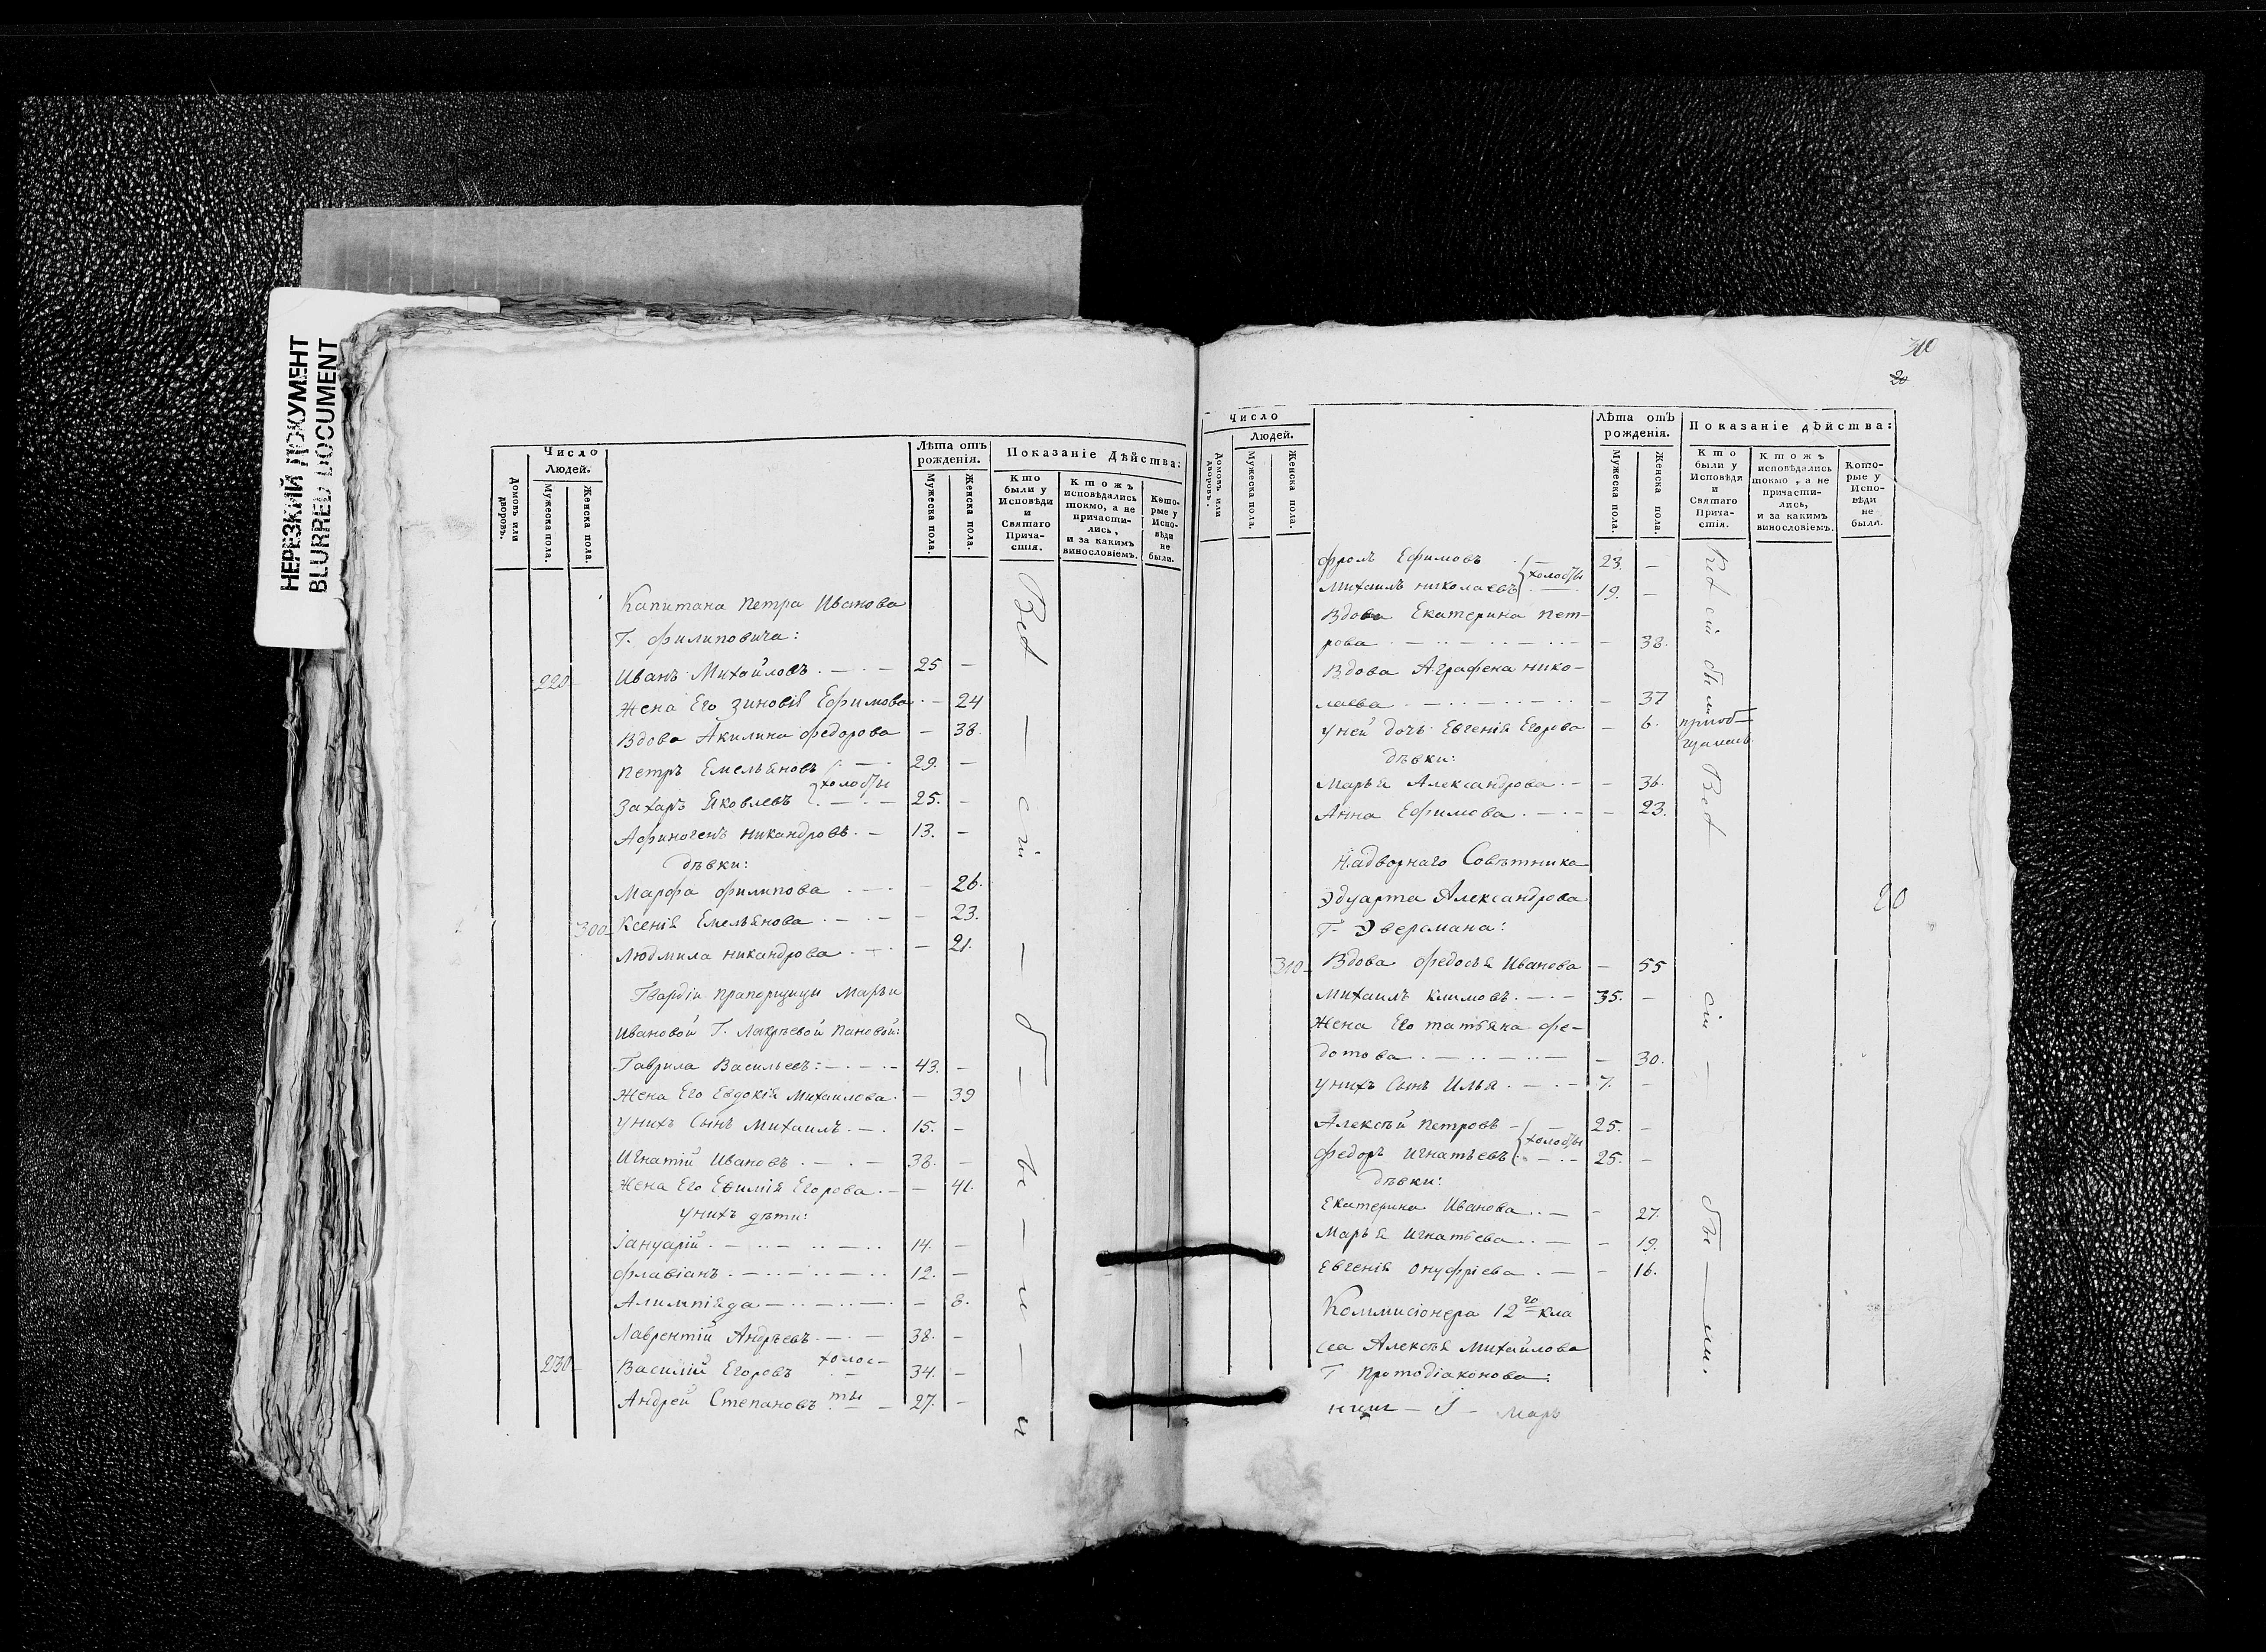 НЕРЕЗКИЙ ДОКУМЕНТ
BLURRED DOCUMENT
Число
Людей.
Домовъ или дворовъ.
Мужеска пола.
Женска пола.
Лѣта отъ рожденія.
Мужеска пола.
Женска пола.
Показаніе Дѣйства:
Кто были у Исповѣди и Святаго Прича-стія.
Ктожъ исповѣдались токмо, а не причасти-лись, и за какимъ винословіемъ.
Кото-рые у Испо-вѣди не были.
Капитана Петра Иванова
Г. Филиповича:
220 Иванъ Михайловъ 25 -
Жена Его Зиновія Ефимова - 24
Вдова Акилина Федорова - 38.
Петръ Емельяновъ 29. -
холосты
Захаръ Яковлевъ 25. -
Афиногенъ Никандровъ 13. -
Дѣвки:
Марфа Филипова - 26.
300 Ксенія Емельянова - 23.
Людмила Никандрова - 21.
Гвардіи Прапорщицы Марьи
Ивановой Г. Пановой:
Гаврила Васильевъ: 43. -
Жена Его Евдокія Михаилова - 39
У нихъ Сынъ Михаилъ 15. -
Игнатій Ивановъ 38. -
Жена Его Евимія Егорова - 41.
У нихъ дѣти:
Іануарій 14. -
Флавіанъ 12. -
Алимпіяда - 8.
Лаврентій Андрѣевъ 38. -
230 Василій Егоровъ холос- 34. -
Андрей Степановъ ты 27. -
Всѣ сіи были
310
20
Число
Людей.
Домовъ или дворовъ.
Мужеска пола.
Женска пола.
Лѣта отъ рожденія.
Мужеска пола.
Женска пола.
Показаніе дѣйства:
Кто были у Исповѣди и Святаго Прича-стія.
Ктожъ исповѣдались токмо, а не причасти-лись, и за какимъ винословіемъ.
Кото-рые у Испо-вѣди не были.
Фролъ Ефимовъ 23. -
холосты
Михаилъ Николаевъ 19. -
Вдова Екатерина Пет-
рова - 38.
Вдова Аграфена Нико-
лаева - 37
У ней дочь Евгенія Егорова - 6.
Дѣвки:
Марья Александрова - 36.
Анна Ефимова - 23.
Надворнаго Совѣтника
Эдуарта Александрова
Г. Эверсмана:
20
310 Вдова Федосья Иванова - 55
Михаилъ Климовъ 35. -
Жена Его Татьяна Фе-
дотова - 30.
У нихъ Сынъ Илья 7. -
Алексѣй Петровъ 25. -
холосты
Федоръ Игнатьевъ 25. -
Дѣвки:
Екатерина Иванова - 27.
Марья Игнатьева - 19.
Евгенія Онуфріева - 16.
Коммисіонера 12го кла
сса Алексѣя Михайлова
Г Протодіаконова:
Марь
Всѣ сіи были
Всѣ сіи были.